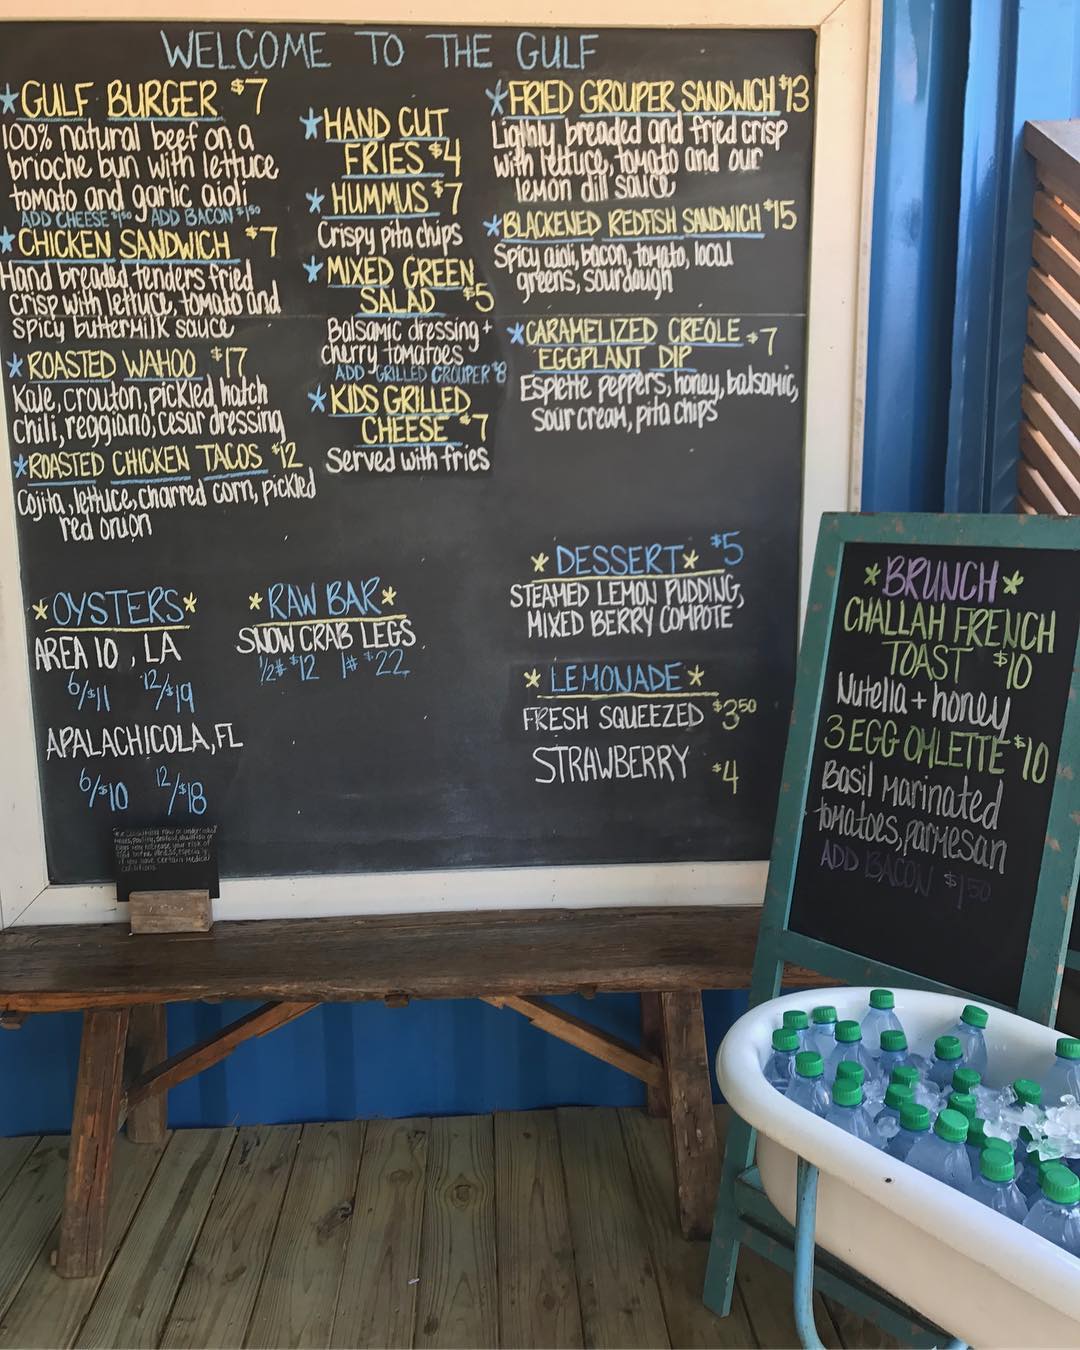 WELCOME TO THE GULF
*GULF BURGER $7
100% natural beef on a
brioche bun with lettuce
tomato and garlic aioli
ADD CHEESE $1.50 ADD BACON $1.50
*CHICKEN SANDWICH $7
Hand breaded tenders fried
crisp with lettuce, tomato and
spicy buttermilk sauce
*ROASTED WAHOO $17
Kale, crouton, pickled hatch
chili, reggiano, cesar dressing
*ROASTED CHICKEN TACOS $12
Cojita, lettuce, charred corn, pickled
red onion
*HAND CUT
FRIES $4
*HUMMUS $7
Crispy pita chips
*MIXED GREEN
SALAD $5
Balsamic dressing +
cherry tomatoes
ADD GRILLED GROUPER $8
*KIDS GRILLED
CHEESE $7
Served with fries
*FRIED GROUPER SANDWICH $13
Lighly breaded and fried crisp
with lettuce, tomato and our
lemon dill sauce
*BLACKENED REDFISH SANDWICH $15
Spicy aioli, bacon, tomato, local
greens, sourdough
*CARAMELIZED CREOLE $7
EGGPLANT DIP
Esplette peppers, honey, balsamic,
sour cream, pita chips
*OYSTERS*
AREA 10, LA
6/$11 12/$19
APALACHICOLA, FL
6/$10 12/$18
*RAW BAR*
SNOW CRAB LEGS
1/2# $12 1# $22
*DESSERT* $5
STEAMED LEMON PUDDING,
MIXED BERRY COMPOTE
*LEMONADE*
FRESH SQUEEZED $3.50
STRAWBERRY $4
consuming raw or undercooked
meats, poultry, seafood, shellfish or
eggs may increase your risk of
food borne illness, especially
if you have certain medical
conditions
*BRUNCH*
CHALLAH FRENCH
TOAST $10
Nutella + honey
3 EGG OMLETTE $10
Basil Marinated
tomatoes, parmesan
ADD BACON $1.50